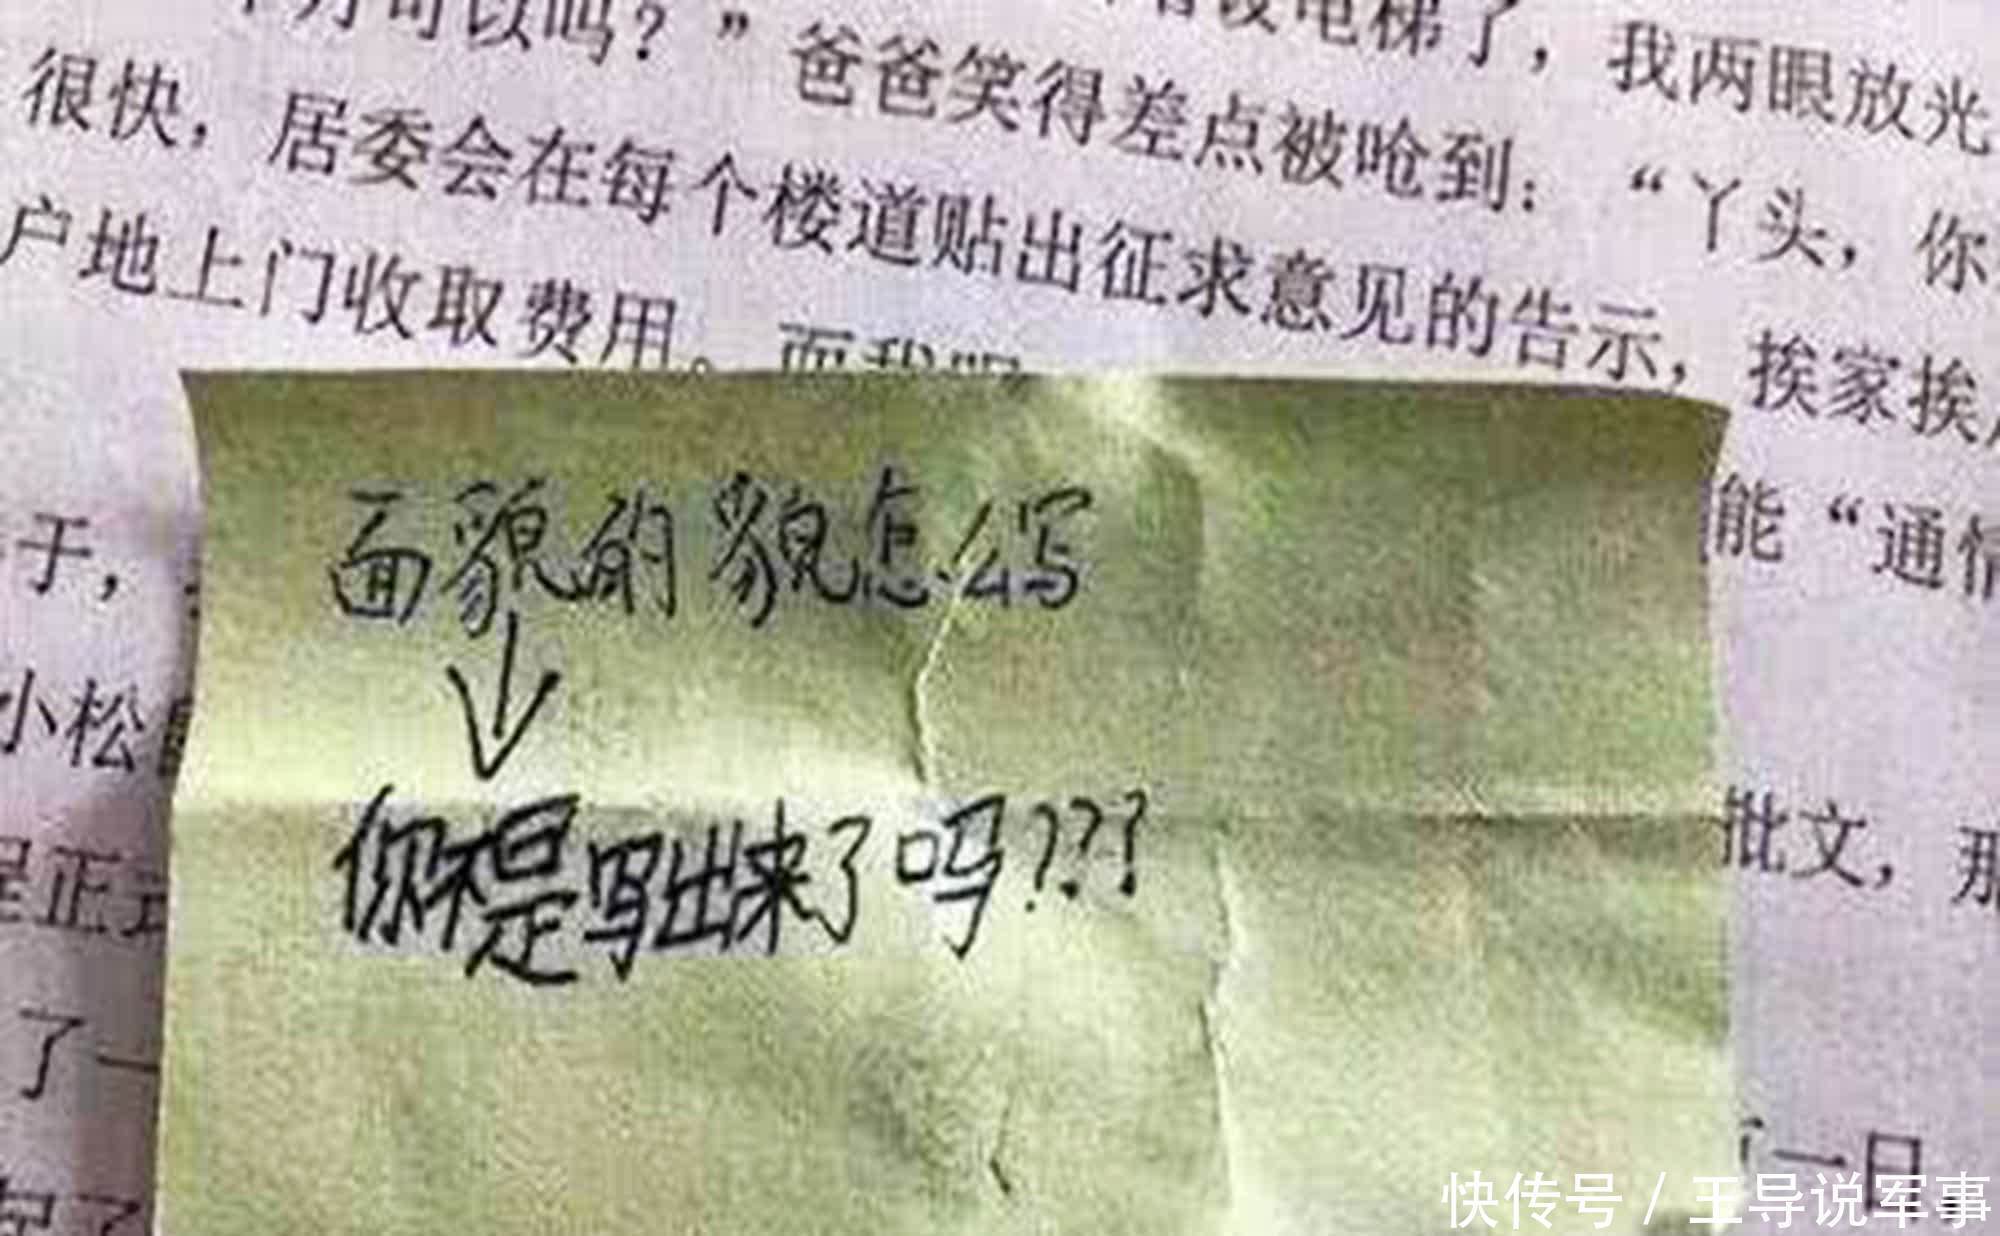 可以吗？”爸爸笑得差点被呛到：“丫头，你
电梯了，我两眼放光
很快，居委会在每个楼道贴出征求意见的告示，挨家挨
户地上门收取费用。而我
能“通情
于，
小松
批文，那
正式
了一
一日
起了
面貌的貌怎么写
↓
你不是写出来了吗???
快传号/王导说军事